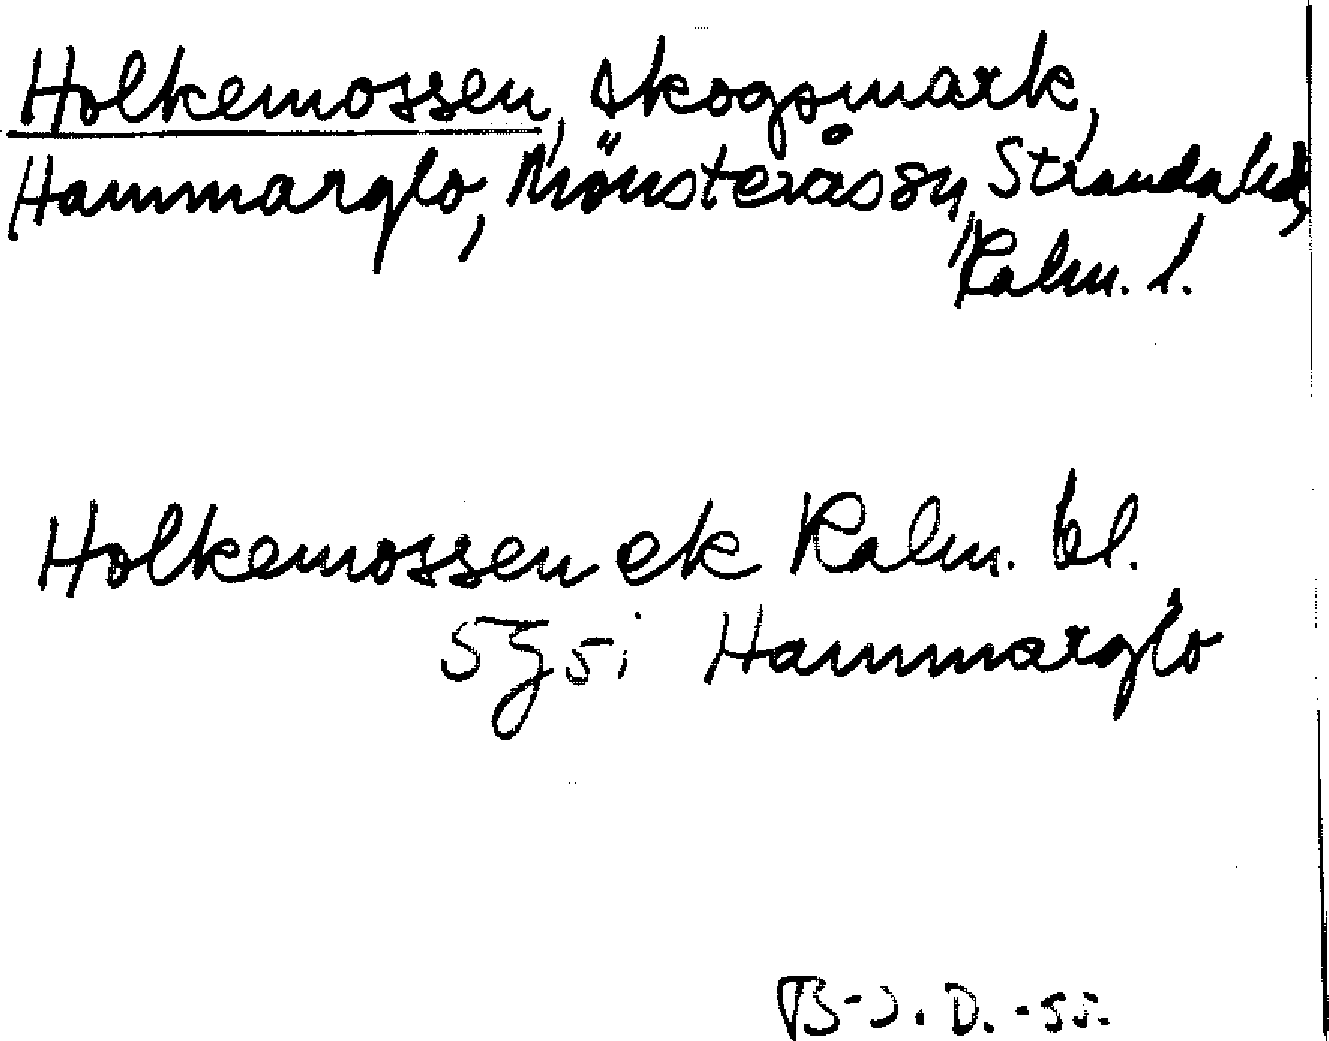 Holkemossen, skogsmark,
Hammarglo, Mönsterås sn, Stranda hd,
Kalm. l.
Holkemossen ek Kalm. bl.
5g5i Hammarglo
B-J.D. -55.